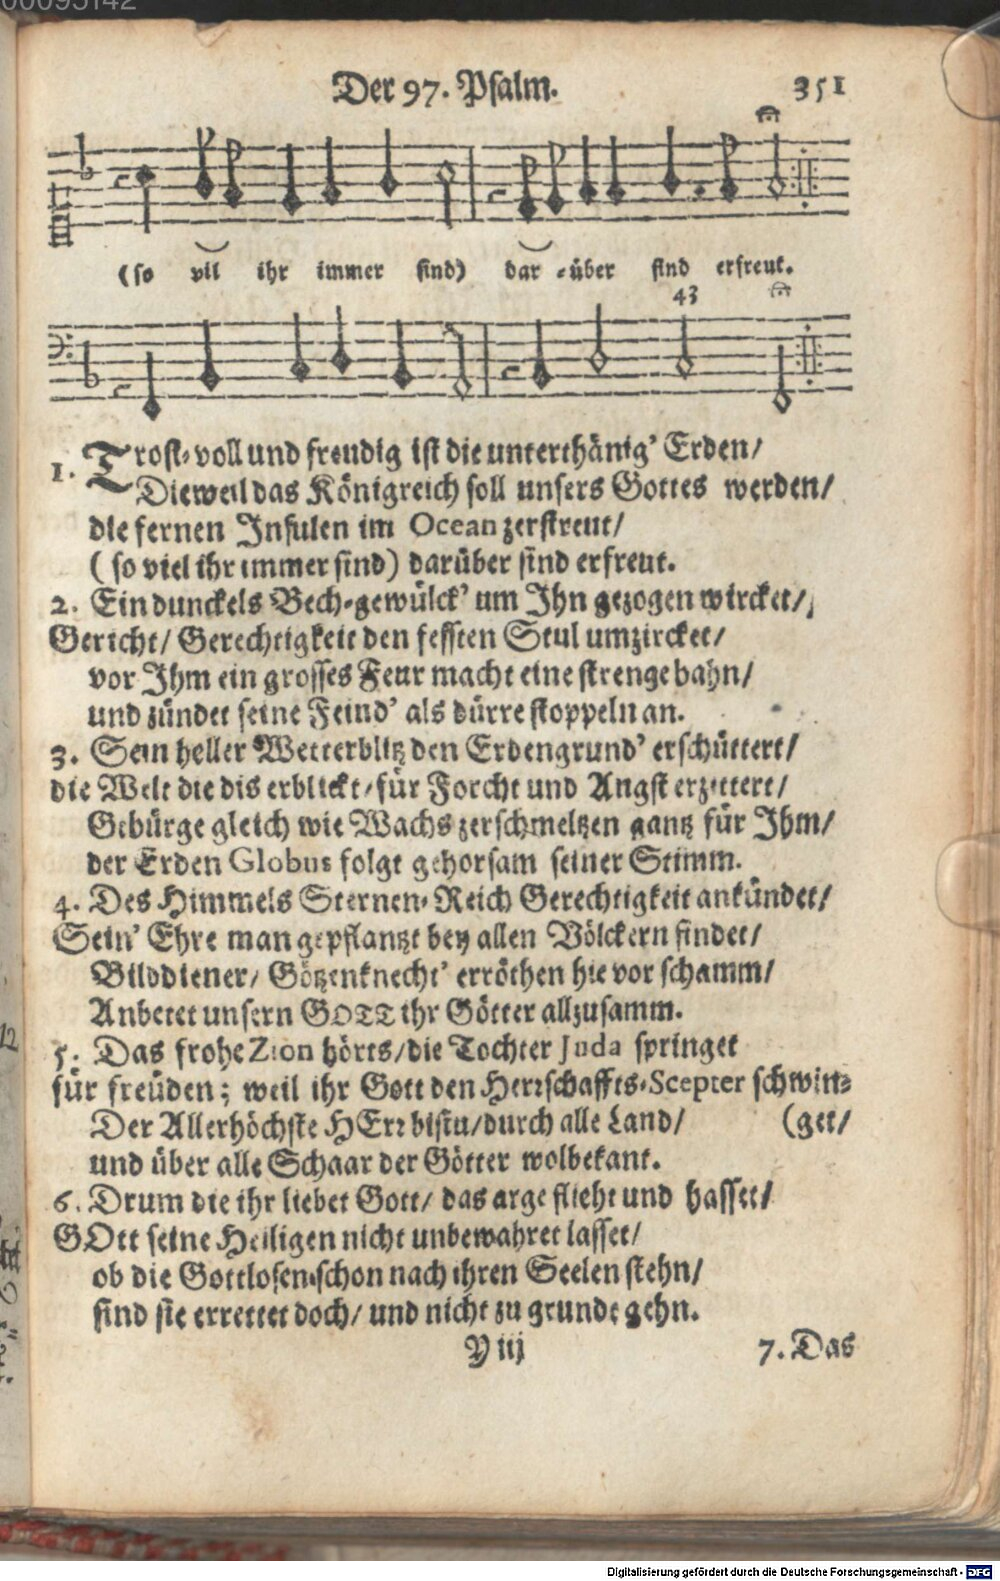 00095142
Der 97. Psalm. 351
(so vil ihr immer sind) dar-über sind erfreut.
43
1. Trost-voll und freudig ist die unterthänig' Erden/
Dieweil das Königreich soll unsers Gottes werden/
die fernen Insulen im Ocean zerstreut/
(so viel ihr immer sind) darüber sind erfreut.
2. Ein dunckels Bech-gewülck' um Ihn gezogen wircket/
Gericht/ Gerechtigkeit den fessten Stul umzircket/
vor Ihm ein grosses Feur macht eine strenge bahn/
und zündet seine Feind' als dürre stoppeln an.
3. Sein heller Wetterblitz den Erdengrund' erschüttert/
die Welt die dis erblickt/ für Forcht und Angst erzittert/
Gebürge gleich wie Wachs zerschmeltzen gantz für Ihm/
der Erden Globus folgt gehorsam seiner Stimm.
4. Des Himmels Sternen-Reich Gerechtigkeit ankündet/
Sein' Ehre man gepflantzt bey allen Völckern findet/
Bilddiener/ Götzenknecht' erröthen hie vor schamm/
Anbetet unsern GOTT ihr Götter allzusamm.
5. Das frohe Zion hörts/ die Tochter Juda springet
für freüden; weil ihr Gott den Herrschaffts-Scepter schwin-
Der Allerhöchste HErr bistu/ durch alle Land/ (get/
und über alle Schaar der Götter wolbekant.
6. Drum die ihr liebet Gott/ das arge flieht und hasset/
GOtt seine Heiligen nicht unbewahret lasset/
ob die Gottlosen schon nach ihren Seelen stehn/
sind sie errettet doch/ und nicht zu grunde gehn.
Y iij 7. Das
Digitalisierung gefördert durch die Deutsche Forschungsgemeinschaft - DFG